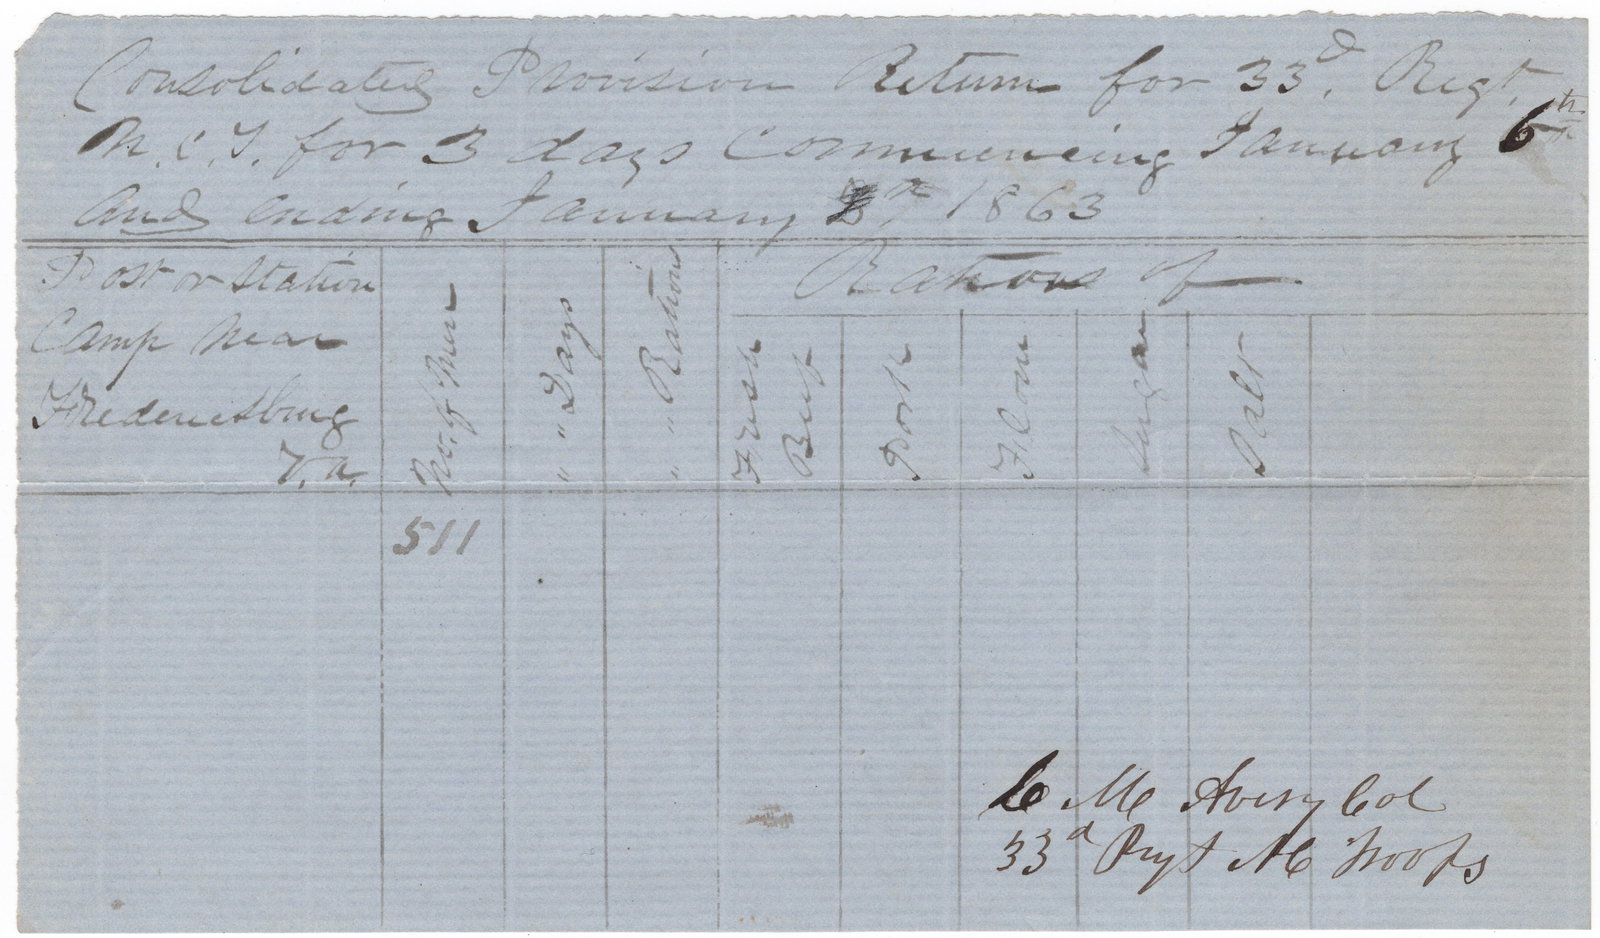 Consolidated Provision Return for 33d. Regt.
N.C.T. for 3 days Commencing January 6th
and ending January 8th 1863
Post or Station
Camp near
Fredericksburg
V.a.
No. of Men
" " Days
" " Rations
Rations of
Fresh
Beef
Pork
Flour
Sugar
Salt
511
C M Avery Col
33d Regt N C Troops